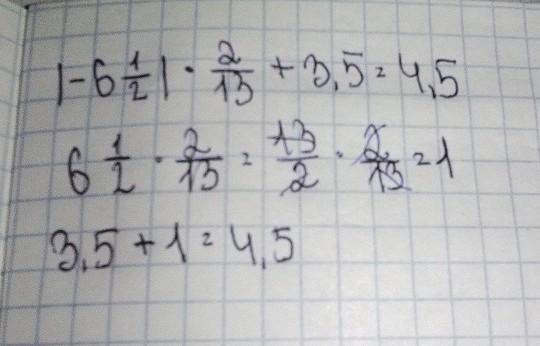 |-6 1/2| · 2/13 + 3,5 = 4,5
6 1/2 · 2/13 = 13/2 · 2/13 = 1
3,5 + 1 = 4,5